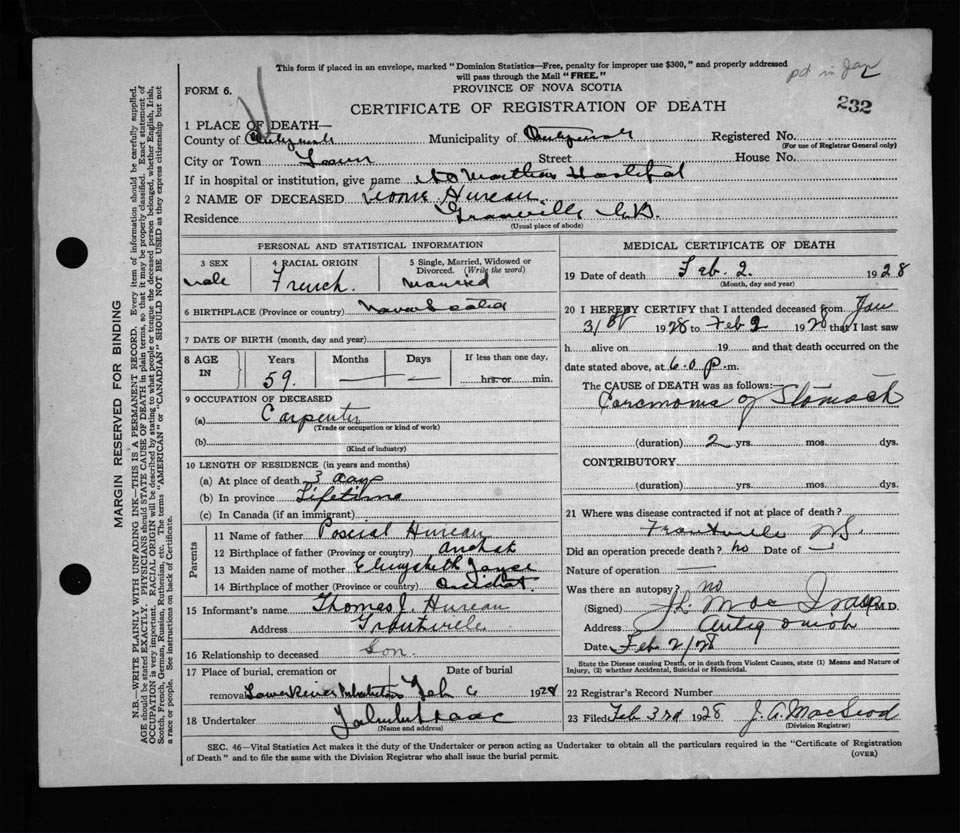 This form if placed in an envelope, marked "Dominion Statistics—Free, penalty for improper use $300," and properly addressed
will pass through the Mail "FREE."
pd in Jay
FORM 6.
PROVINCE OF NOVA SCOTIA
232
CERTIFICATE OF REGISTRATION OF DEATH
1 PLACE OF DEATH—
County of Municipality of Registered No.
(For use of Registrar General only)
City or Town Town Street House No.
If in hospital or institution, give name Hospital
2 NAME OF DECEASED Hureau
Residence
(Usual place of abode)
PERSONAL AND STATISTICAL INFORMATION
3 SEX
male
4 RACIAL ORIGIN
French.
5 Single, Married, Widowed or Divorced. (Write the word)
Married
6 BIRTHPLACE (Province or country) Nova Scotia
7 DATE OF BIRTH (month, day and year)
8 AGE IN
Years Months Days If less than one day,
59. — — hrs. or min.
9 OCCUPATION OF DECEASED
(a) Carpenter
(Trade or occupation or kind of work)
(b)
(Kind of industry)
10 LENGTH OF RESIDENCE (in years and months)
(a) At place of death 3 days
(b) In province Lifetime
(c) In Canada (if an immigrant)
Parents
11 Name of father Hureau
12 Birthplace of father (Province or country)
13 Maiden name of mother
14 Birthplace of mother (Province or country)
15 Informant's name Thomas J. Hureau
Address
16 Relationship to deceased Son
17 Place of burial, cremation or Date of burial
removal Lower River Feb 6 1928
18 Undertaker
(Name and address)
MEDICAL CERTIFICATE OF DEATH
19 Date of death Feb. 2. 1928
(Month, day and year)
20 I HEREBY CERTIFY that I attended deceased from Jan
31st 1928 to Feb 2 1928 that I last saw
h alive on 19 and that death occurred on the
date stated above, at 6.0 p.m.
The CAUSE OF DEATH was as follows:—
Carcinoma of Stomach
(duration) 2 yrs. mos. dys.
CONTRIBUTORY
(duration) yrs. mos. dys.
21 Where was disease contracted if not at place of death?
N.S.
Did an operation precede death? no Date of —
Nature of operation —
Was there an autopsy? no
(Signed) M.D.
Address Antigonish
Date Feb 2/28
State the Disease causing Death, or in death from Violent Causes, state (1) Means and Nature of
Injury, (2) whether Accidental, Suicidal or Homicidal.
22 Registrar's Record Number
23 Filed Feb 3rd 1928 J. A. MacLeod
(Division Registrar)
SEC. 46—Vital Statistics Act makes it the duty of the Undertaker or person acting as Undertaker to obtain all the particulars required in the "Certificate of Registration
of Death" and to file the same with the Division Registrar who shall issue the burial permit.
(OVER)
MARGIN RESERVED FOR BINDING
N.B.—WRITE PLAINLY WITH UNFADING INK—THIS IS A PERMANENT RECORD. Every item of information should be carefully supplied.
AGE should be stated EXACTLY. PHYSICIANS should STATE CAUSE OF DEATH in plain terms, so that it may be properly classified. Exact statement of
OCCUPATION is very important. RACIAL ORIGIN will be described by stating to what people or tongue the deceased person belonged, whether English, Irish,
Scotch, French, German, Russian, Ruthenian, etc. The terms "AMERICAN" or "CANADIAN" SHOULD NOT BE USED as they express citizenship but not
a race or people. See instructions on back of Certificate.